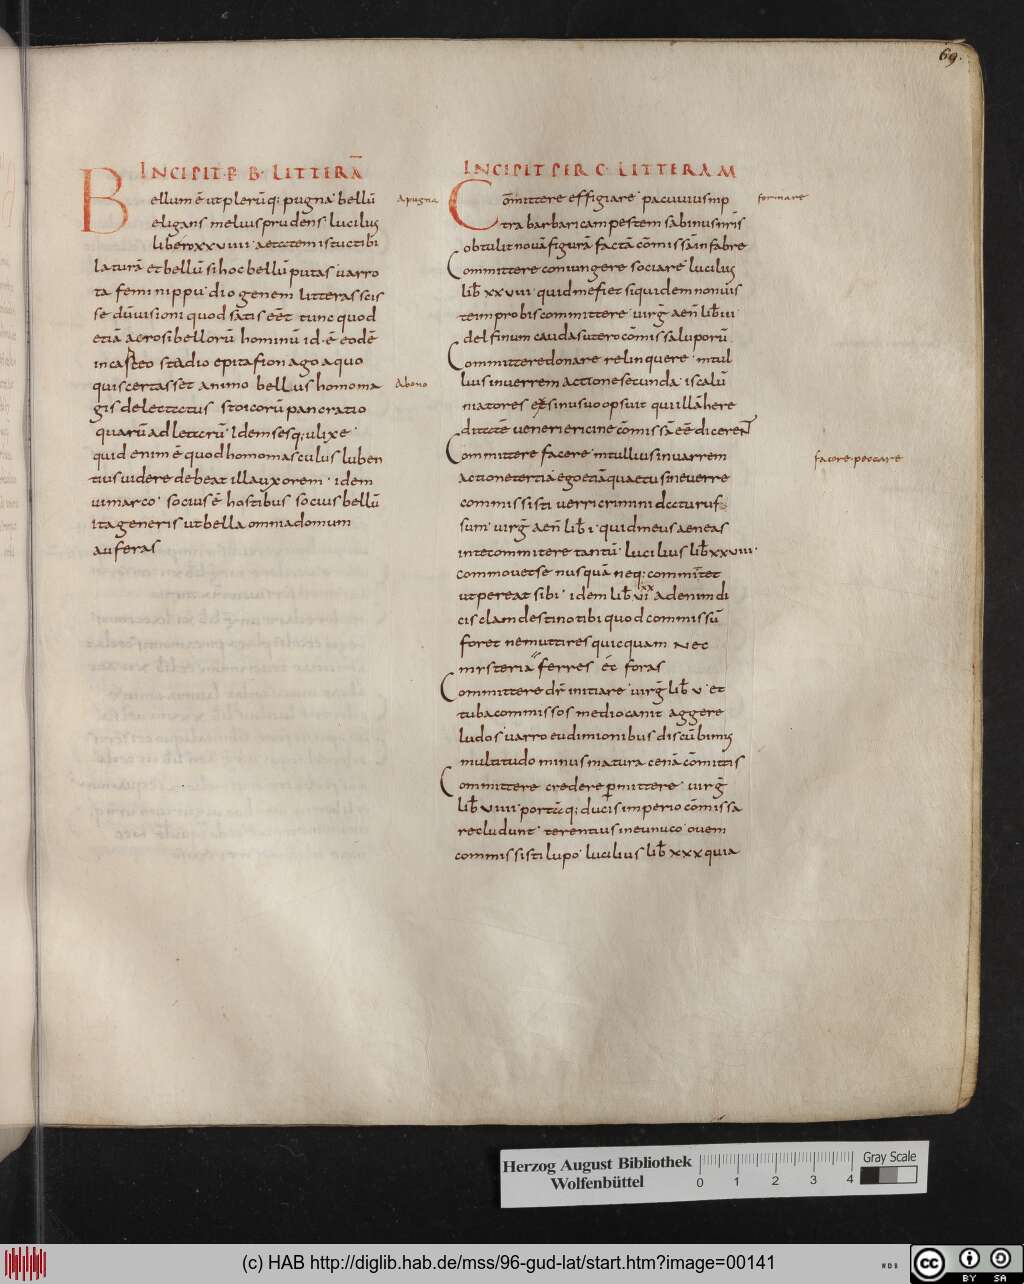 69.
INCIPIT·P̄ B· LITTERĀ
Bellum ē ut plerūq; pugna· bellū
apugna
eligans melius prudens· lucilius
libero xxviiii· aetatem istuc tibi
laturā et bellū si hoc bellū putas· varro
ta femi nippu· diogenem litteras scis
se· dū usioni quod satis eēt tunc quod
etiā acrosi bellorū hominū id· ē eodē
in casteo stadio epitafion ago a quo
quis certasset animo bellus homo ma
Abono
gis delectatus stoicorū pancratio
quarū ad letarū· Idem sesq; ulixe·
quid enim ē quod homo masculus luben
tius videre debeat illa uxorem· idem
vimarco· socius ē hostibus socius bellū
ita generis ut bella omnia domum
auferas
INCIPIT PER C· LITTERAM
Cōmittere effigiare· pacuvius inp
formare
tra barbaricam pestem sabinus nr̄is
obtulit novā figurā factā cōmissā infabre
Committere coniungere sociare· lucilius
lib̄ xxviii· quid me fiet siquidem non vis
te improbis committere· virḡ aen̄ lib̄ iii·
delfinum caudas utero cōmissa luporū
Committere donare relinquere· m tul
lius in verrem actione secunda· is calū
niatores ex sinu suo opsuit qui illā here
ditatē veneri ericine cōmissā eē dicerent
Committere facere· m tullius in varrem
facere·peccare
actione tertiā ego etiā quaetus ine verre
commississti verri crimini daturus
sum· virḡ aen̄ lib̄ i· quid meus aeneas
in te committere tantū· lucilius lib̄ xxviii·
commovet se nusquā neq; committet
ut pereat sibi· idem lib̄ vi xx Ad enim di
cis clam destino tibi quod commissū
foret ne muttires quicquam nec
mysteria ferres ec foras
Committere dr̄ initiare· virḡ lib̄ v· et
tuba commissos medio canit aggere
ludos· varro eudimionibus discūbimus
multitudo minus matura cenā cōmittis
Committere credere p̄mittere· virḡ
lib̄ viiii· portā q; ducis imperio cōmissa
recludunt· terentius in eunuco· ovem
commississti lupo· lucilius lib̄ xxx quia
Herzog August Bibliothek
Wolfenbüttel
0 1 2 3 4
Gray Scale
(c) HAB http://diglib.hab.de/mss/96-gud-lat/start.htm?image=00141
WDB
cc BY SA